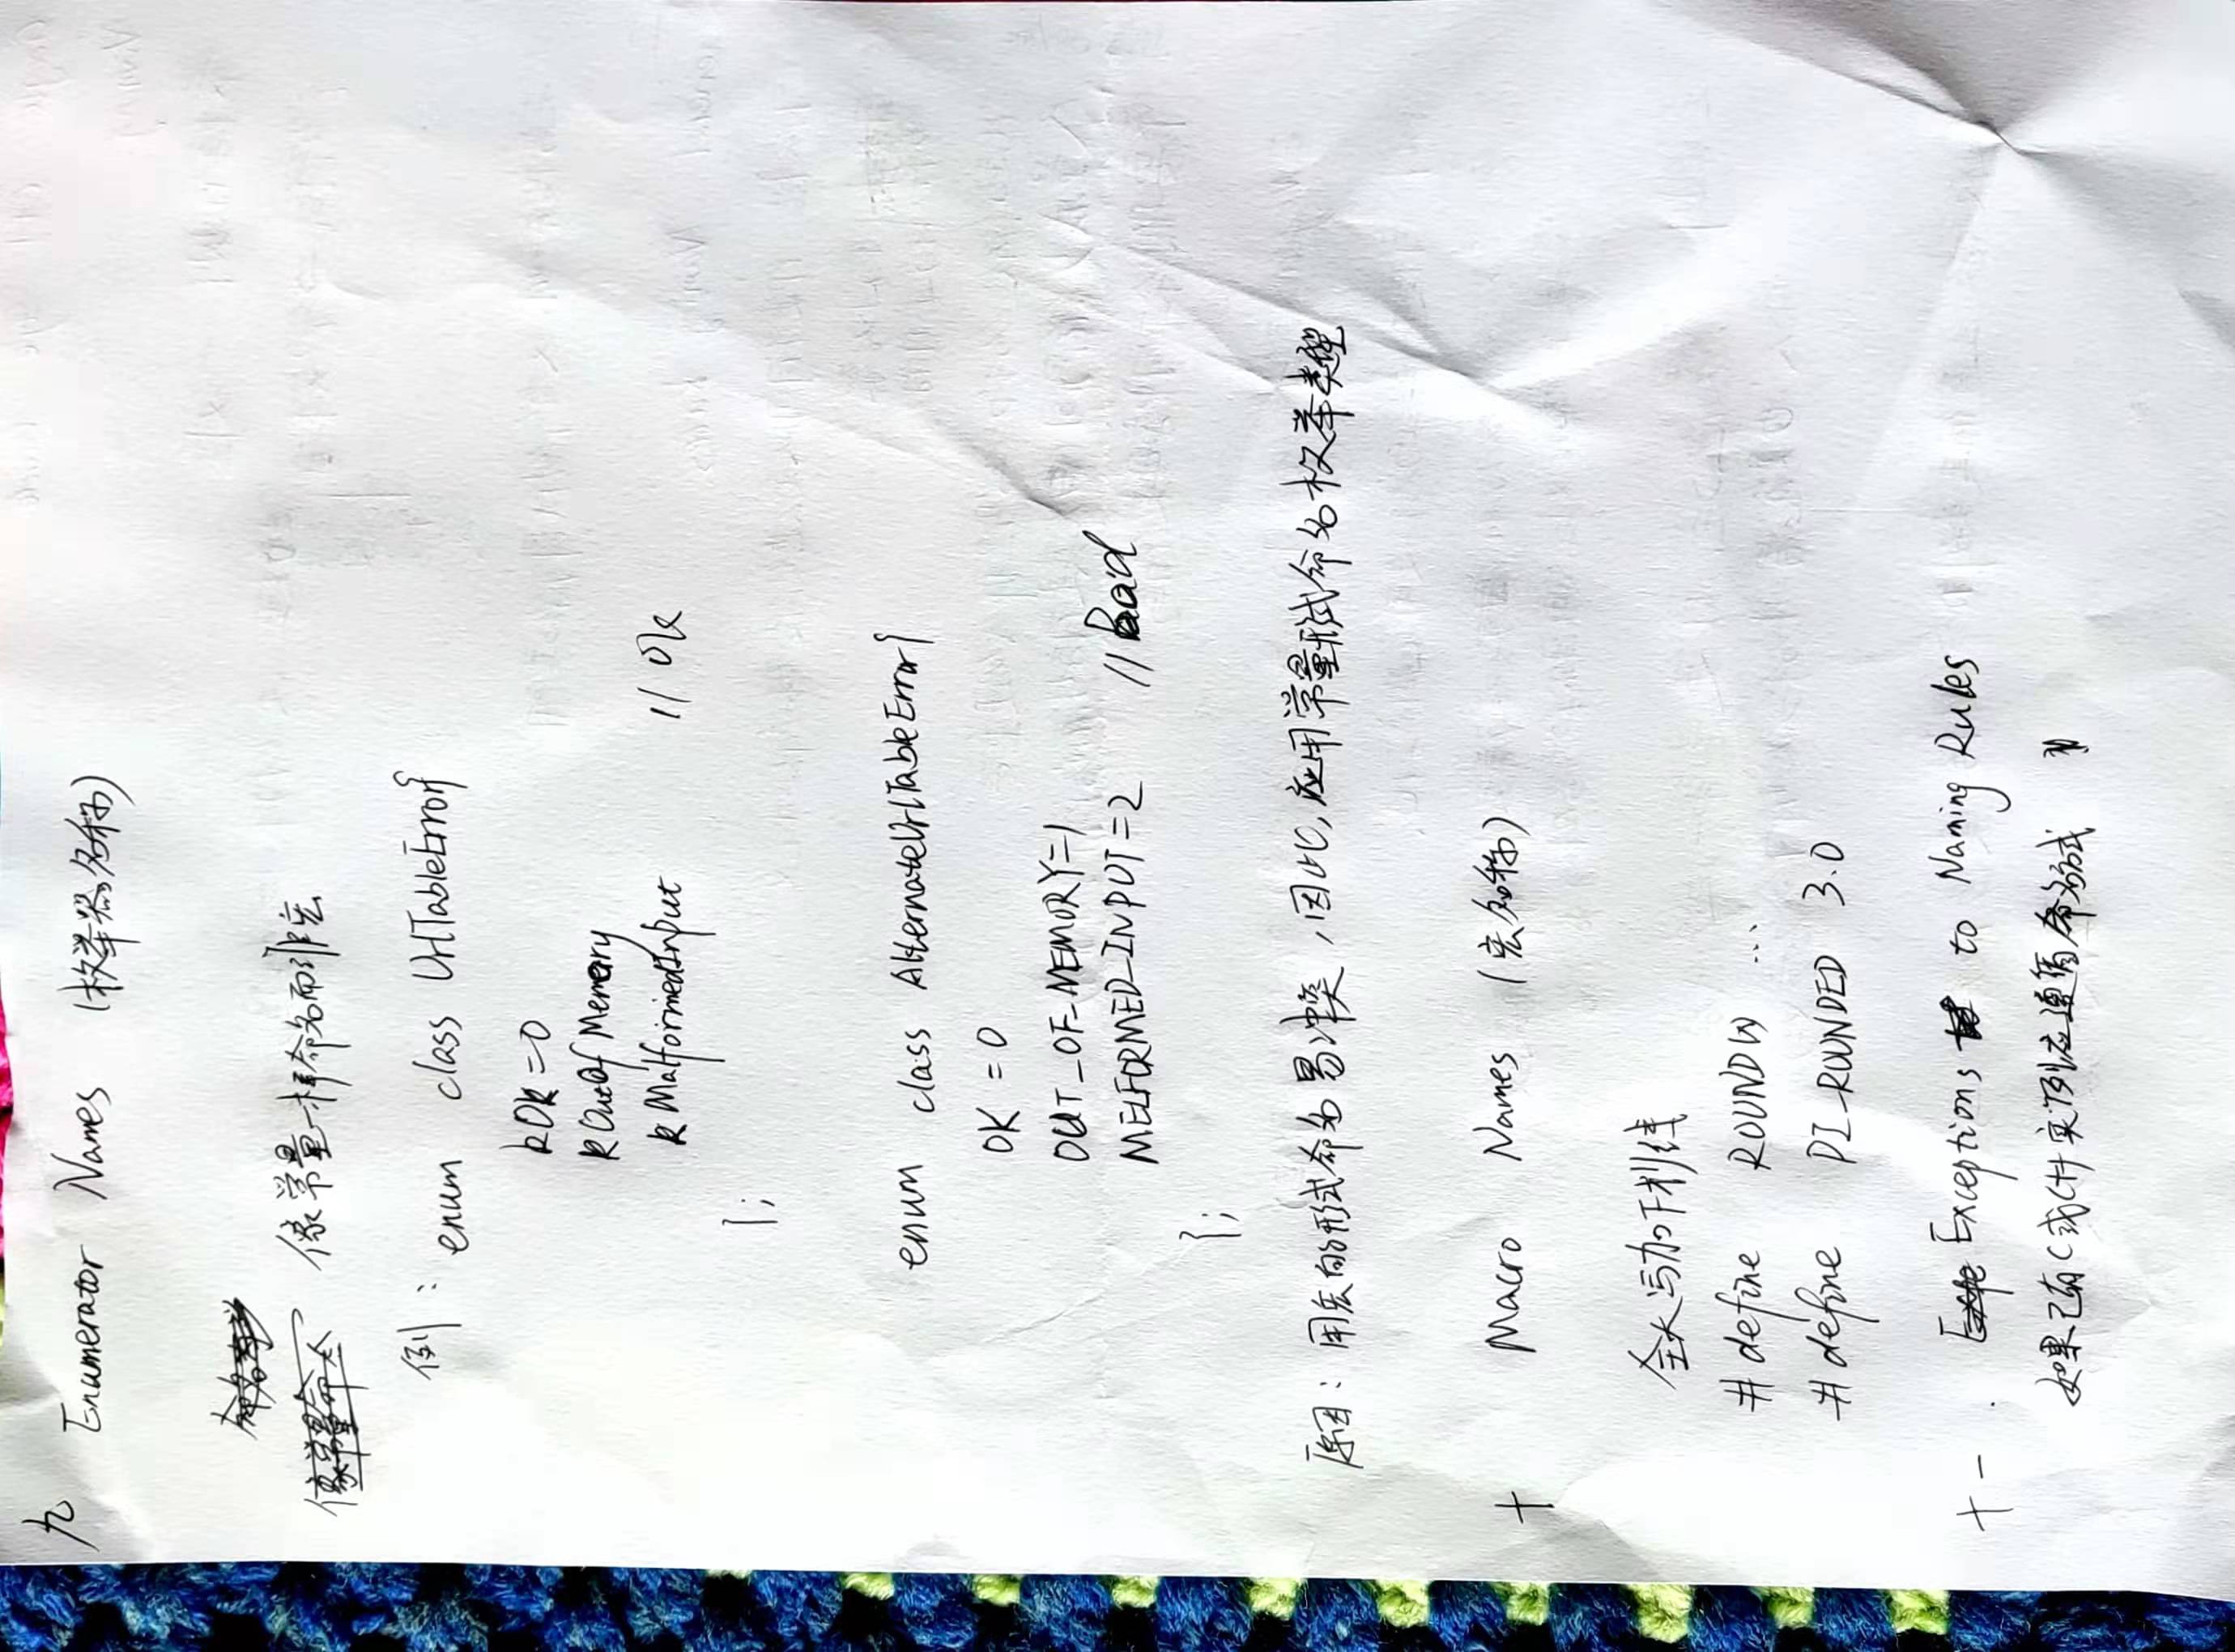 九 Enumerator Names (枚举器名称)
像常量一样命名而非宏
例: enum class UrlTableError{
kOK=0
kOutOfMemory
kMalformedInput // Ok
};
enum class AlternateUrlTableError{
OK=0
OUT_OF_MEMORY=1
MELFORMED_INPUT=2 //Bad
};
原因: 用宏的形式命名易冲突,因此,应用常量形式命名枚举类型
十 Macro Names (宏名称)
全大写加下划线
#define ROUND(x) ...
#define PI_ROUNDED 3.0
十一. Exceptions to Naming Rules
如果已有C或C++实例应遵循命名方式